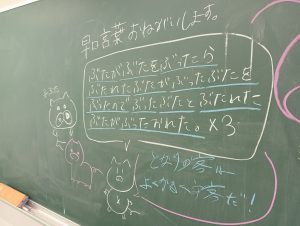 早口言葉おねがいします。
ぶたがぶたをぶったら
ぶたれたぶたがぶったぶたを
ぶったのでぶったぶたとぶたれた
ぶたがぶったおれた。×3
となりの客は
よくかきくう客だ！